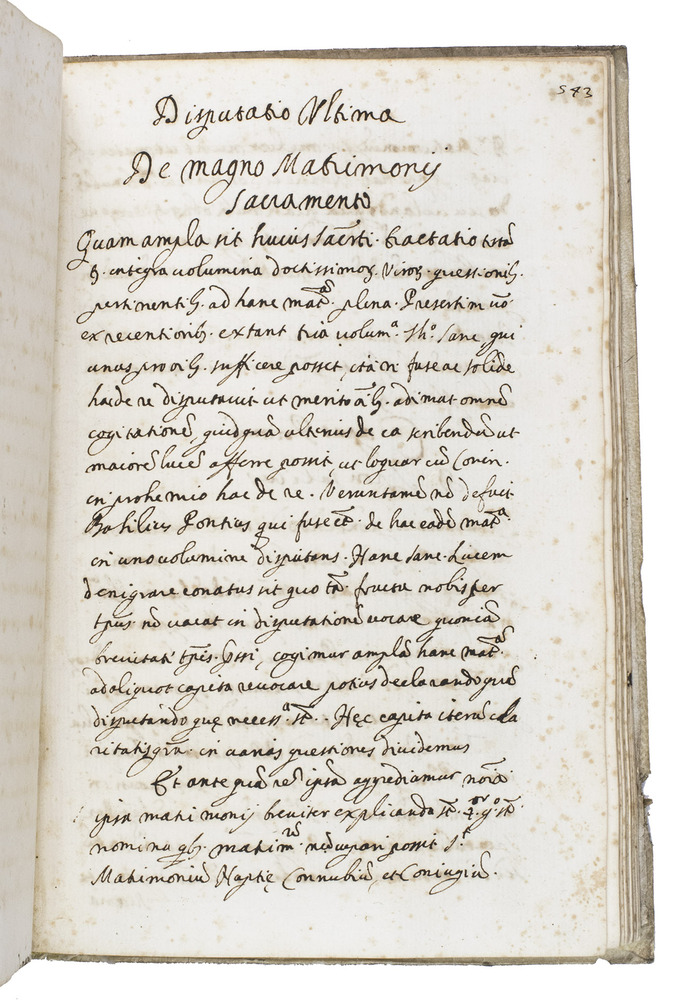 583
Disputatio Ultima
De magno Matrimonij
Sacramento
Quam ampla sit huius Sacr̃ti. tractatio testã
integra volumina doctissimoꝝ. Viroꝝ. questionib.
pertinentib. ad hanc mat.ã plena. Presertim uó
ex recentiorib. extant tria volum.ª Th.º Sanc, qui
unus pro oib. sufficere posset, ita n̄ fuse ac solide
hac de re disputavit ut merito oib. adimat omnẽ
cogitationẽ, quidquã ulterius de ea scribendũ ut
maiorẽ lucẽ afferre possit, ut loquar cũ Conin.
in prohemio hac de re. Veruntamẽ nõ defuit
Basilius Pontius qui fuse de hac eadẽ mat.ª
in uno volumine disputans. Hanc Sanc. Lucem
denigrare conatus sit quo tã. fructu nobis per
tp̃us. nõ vacat in disputationẽ vocare quoniã
brevitati tp̃is. cogimur amplã hanc mat.ã
ad aliquot capita revocare potius declarando quã
disputando quę necess.ª st̃. Hęc capita iterũ cla
ritatis grã. in varias questiones dividemus
Et ante quã rẽ ipsã aggrediamur nõia
ipsa matrimonij breviter explicanda st̃. 4.or st̃
nomina qb. matrim. nũcupari possit. s.t
Matrimoniũ Nuptię Connubiũ, et Coniugiũ.